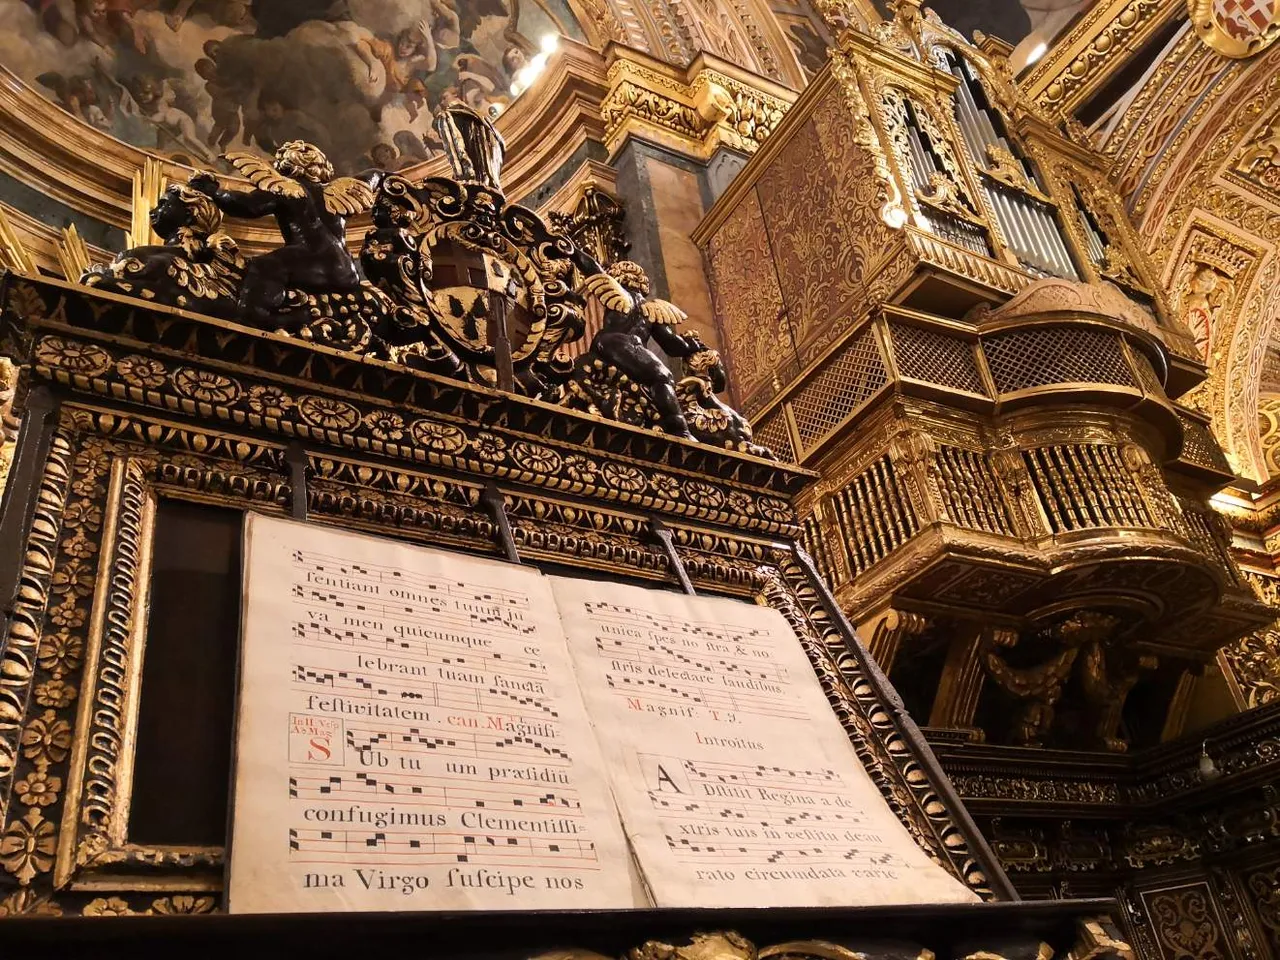 ſentiant omnes tuum ju
va men quicumque ce
lebrant tuam ſanctã
feſtivitatem. can. Magnifi:
In II Veſp
Ad Mag
SUb tu um præſidiũ
confugimus Clementiſſi-
ma Virgo ſuſcipe nos
unica ſpes no ſtra & no
ſtris delectare laudibus.
Magnif: T.
Introitus
ADſtitit Regina a de
xtris tuis in veſtitu deau
rato circumdata varie